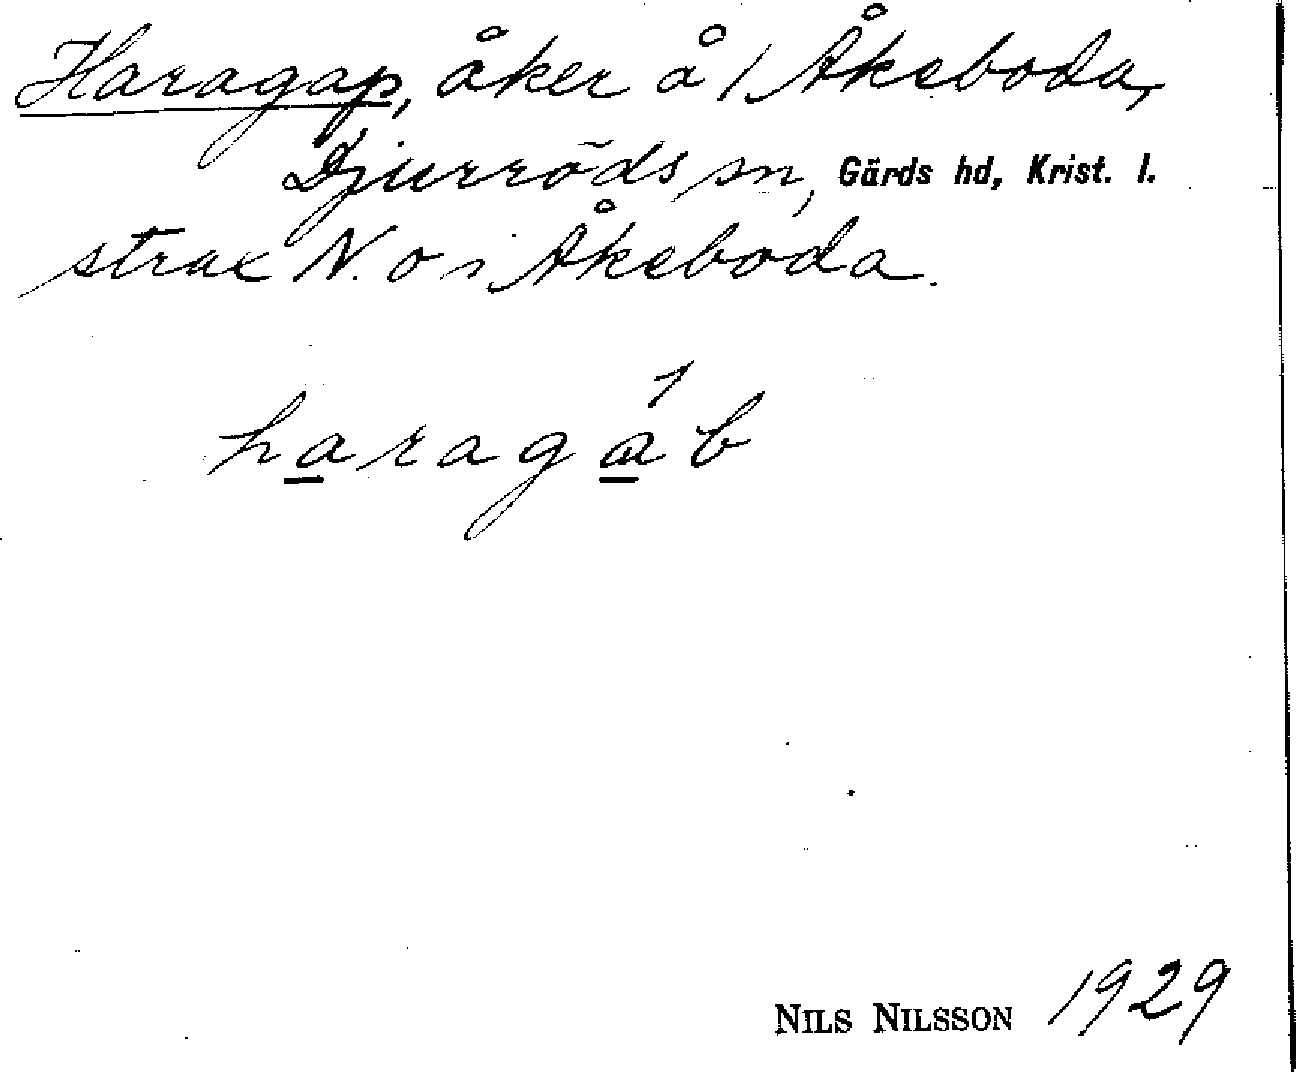 Haragap, åker å 1 Åkeboda,
Djurröds sn, Gärds hd, Krist. l.
strax N. o i Åkeboda.
haragáb
NILS NILSSON 1929